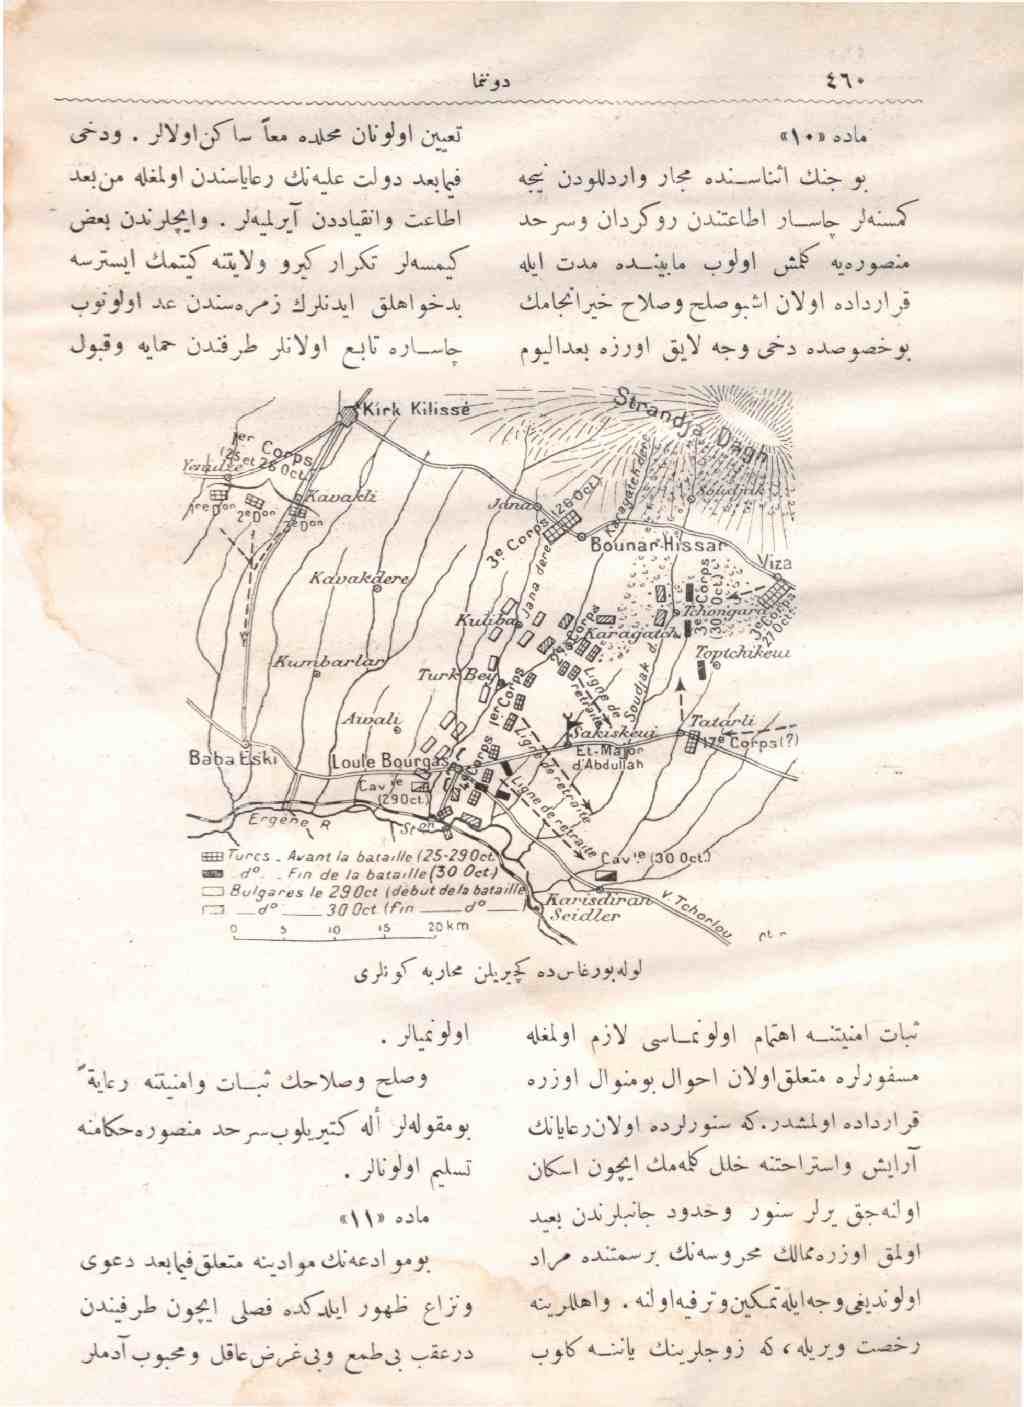 ٤٦٠
دوننما
ماده «١٠»
بو جنك اثناسنده مجار واردللودن نیجه
كمسنه‌لر چاسار اطاعتندن روكردان وسرحد
منصوره‌یه كلمش اولوب مابینده مدت ایله
قرارداده اولان اشبوصلح وصلاح خیرانجامك
بوخصوصده دخی وجه لایق اورزه بعدالیوم
تعیین اولونان محلده معاً ساكن‌اولالر . ودخی
فیمابعد دولت علیه‌نك رعایاسندن اولمغله من‌بعد
اطاعت وانقیاددن آیرلمیه‌لر . وایچلرندن بعض
كیمسه‌لر تكرار كیرو ولایتنه كیتمك ایسترسه
بدخواهلق ایدنلرك زمره‌سندن عد اولونوب
چاساره تابع اولانلر طرفندن حمایه وقبول
Kirk Kilissé
Strandja Dagh
1er Corps
(25 et 26 Oct.)
Yenidze
Kavakli
1re Don
2e Don
3e Don
Jana
3e Corps (28 Oct.)
Karagatch dere
Soudjak
Bounar-Hissar
Viza
Kavakdere
Jana dere
Kuliba
2e Corps
Karagatch
Tchongara
3e Corps
(30 Oct.)
3e Corps
27 Oct.
Toptchikeui
Kumbarlar
Turk Bei
1er Corps
Ligne de retraite
Soudjak d.
Aivali
Sakiskeui
Et-Major
d'Abdullah
Tatarli
17e Corps(?)
Baba Eski
Loule Bourgas
4e Corps
Ligne de retraite
Cav.ie
(29 Oct.)
Ligne de retraite
Ergène R
Ston
Cav.ie (30 Oct.)
Karisdiran
Seidler
V. Tchorlou
Turcs . Avant la bataille (25-29 Oct.)
do. . Fin de la bataille (30 Oct.)
Bulgares le 29 Oct (début de la bataille
do 30 Oct (fin do )
0 5 10 15 20 km
لوله‌بورغاس‌ده كچیریلن محاربه كونلری
ثبات امنیتنه اهتمام اولونماسی لازم اولمغله
مسفورلره متعلق‌اولان احوال بومنوال اوزره
قرارداده اولمشدر. كه سنورلرده اولان‌رعایانك
آرایش واستراحتنه خلل كلمه‌مك ایچون اسكان
اولنه‌جق یرلر سنور وحدود جانبلرندن بعید
اولمق اوزره‌ممالك محروسه‌نك برسمتنده مراد
اولوندیغی‌وجه‌ایله‌تمكین‌وترفیه‌اولنه . واهللرینه
رخصت ویریله، كه زوجلرینك یاننه كلوب
اولونمیالر .
وصلح وصلاحك ثبات وامنیتنه رعایةً
بومقوله‌لر أله كتیریلوب‌سرحد منصوره‌حكامنه
تسلیم اولونالر .
ماده «١١»
بوموادعه‌نك موادینه متعلق‌فیمابعد دعوی
ونزاع ظهور ایلدكده فصلی ایچون طرفیندن
درعقب بی‌طمع وبی‌غرض‌عاقل ومحبوب آدملر